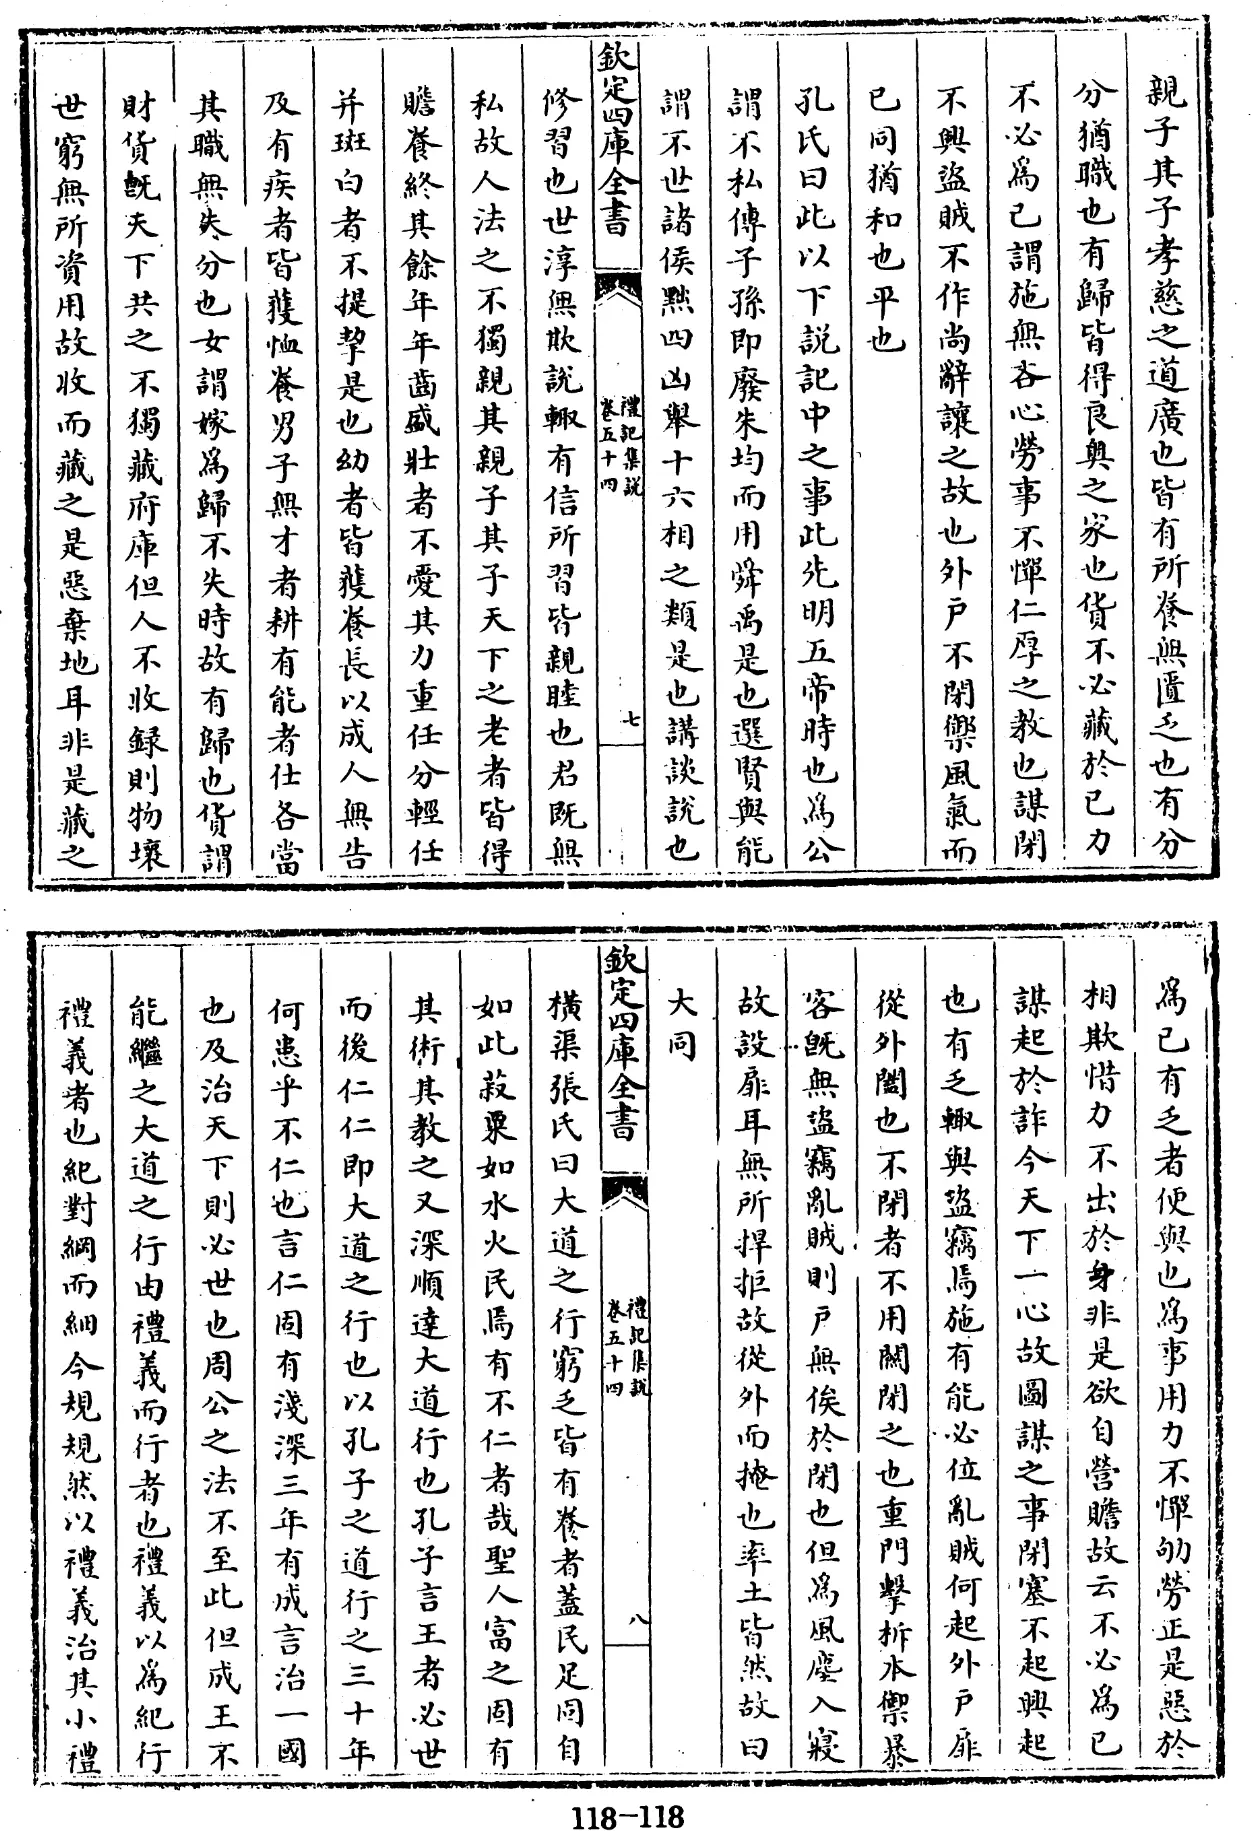 親子其子孝慈之道廣也皆有所養無匱乏也有分
分猶職也有歸皆得良奧之家也貨不必藏於已力
不必為已謂施無吝心勞事不憚仁厚之教也謀閉
不興盜賊不作尚辭讓之故也外戶不閉禦風氣而
已同猶和也平也
孔氏曰此以下說記中之事此先明五帝時也為公
謂不私傳子孫即廢朱均而用舜禹是也選賢與能
謂不世諸侯黜四凶舉十六相之類是也講談說也
欽定四庫全書
禮記集說
卷五十四
七
修習也世淳無欺說輙有信所習皆親睦也君既無
私故人法之不獨親其親子其子天下之老者皆得
贍養終其餘年年齒盛壯者不愛其力重任分輕任
并斑白者不提挈是也幼者皆獲養長以成人無告
及有疾者皆獲恤養男子無才者耕有能者仕各當
其職無失分也女謂嫁為歸不失時故有歸也貨謂
財貨既天下共之不獨藏府庫但人不收録則物壞
世窮無所資用故收而藏之是惡棄地耳非是藏之
為已有乏者便與也為事用力不憚劬勞正是惡於
相欺惜力不出於身非是欲自營贍故云不必為已
謀起於詐今天下一心故圖謀之事閉塞不起興起
也有乏輙與盜竊焉施有能必位亂賊何起外戶扉
從外闔也不閉者不用關閉之也重門擊柝本禦暴
客既無盜竊亂賊則戶無俟於閉也但為風塵入寢
故設扉耳無所捍拒故從外而掩也率土皆然故曰
大同
欽定四庫全書
禮記集說
卷五十四
八
橫渠張氏曰大道之行窮乏皆有養者蓋民足同自
如此菽粟如水火民焉有不仁者哉聖人富之固有
其術其教之又深順達大道行也孔子言王者必世
而後仁仁即大道之行也以孔子之道行之三十年
何患乎不仁也言仁固有淺深三年有成言治一國
也及治天下則必世也周公之法不至此但成王不
能繼之大道之行由禮義而行者也禮義以為紀行
禮義者也紀對綱而細今規規然以禮義治其小禮
118-118